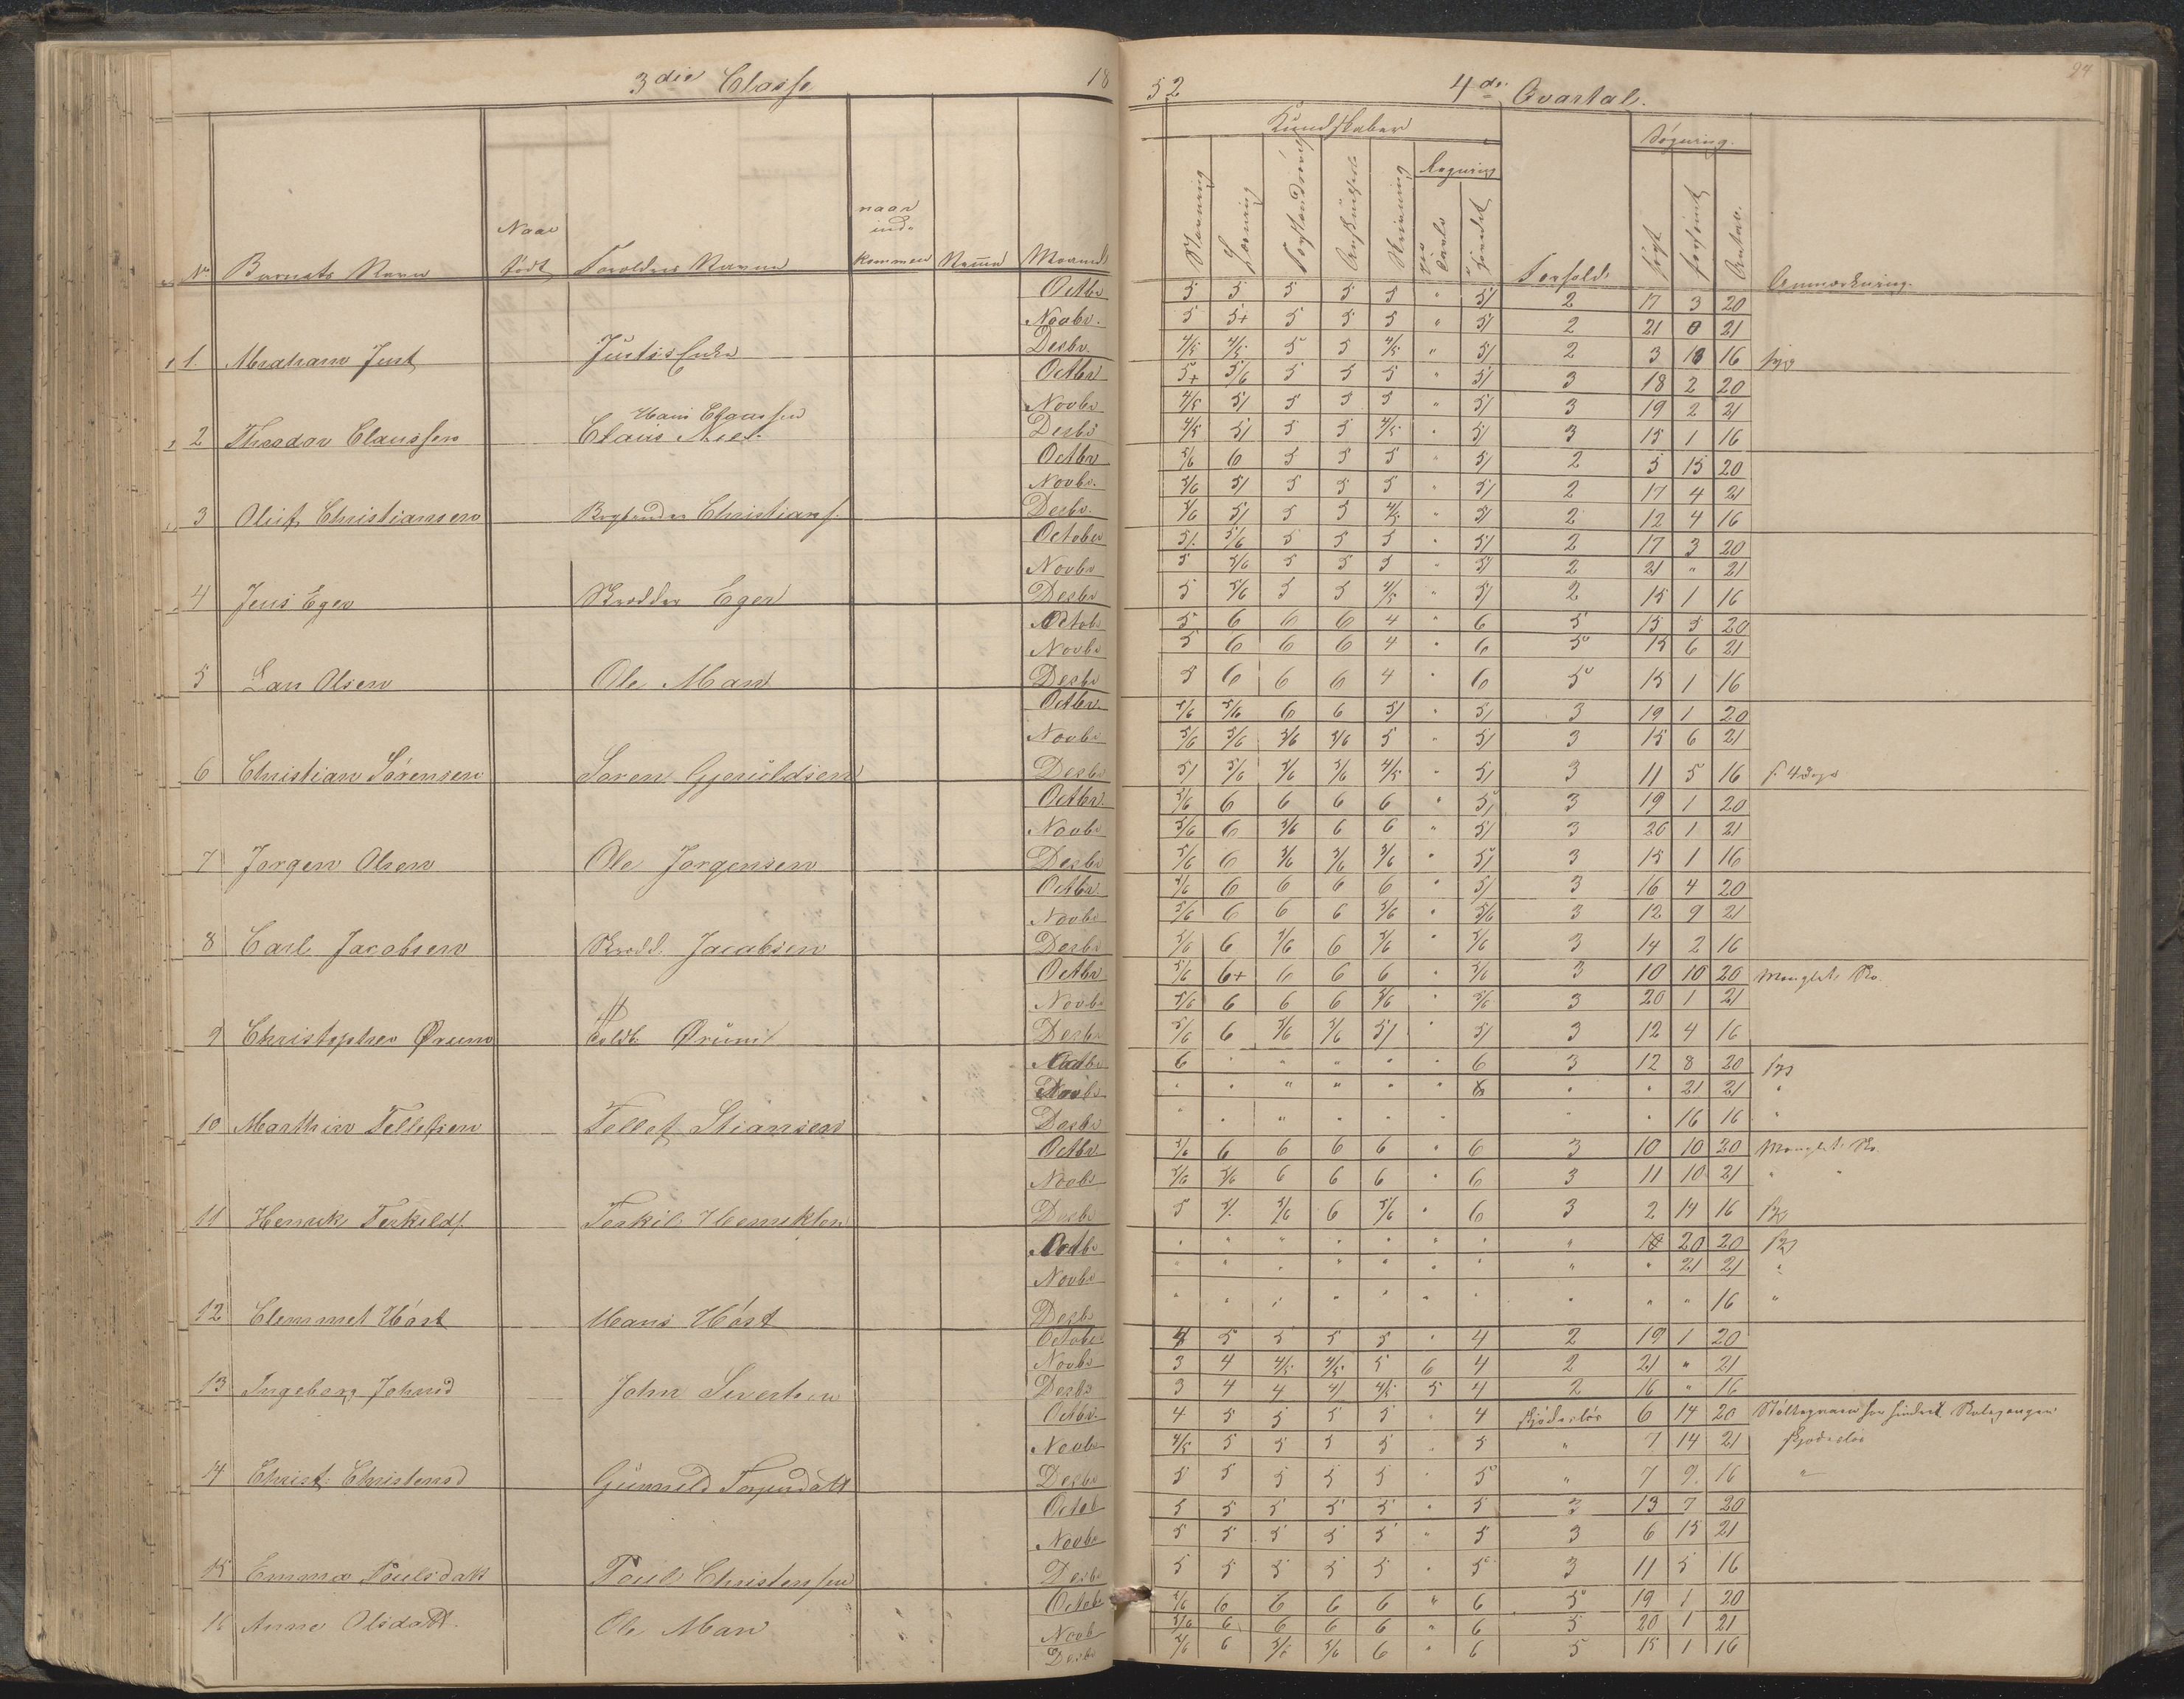 3die Classe 18
52 4de Qvartal. 94
Kundskaber Søgning.
Regning
No Barnets Navn Naar født Forældres Navne naar ind- kommen Maaned
Skrivning til Tavle Forhold søgt forsømt Antal Anmærkning.
Octbr 5 5 5 5 5 " 5/ 2 17 3 20
Novbr. 5 5+ 5 5 5 " 5/ 2 21 0 21
1. Abraham Just Desbr. 4/5 4/5 5 5 4/5 " 5/ 2 3 13 16 syg
Octbr 5+ 5/6 5 5 5 " 5/ 3 18 2 20
Hans Claussen Novbr 4/5 5/ 5 5 5 " 5/ 3 19 2 21
2 Theodor Claussen Claus Desbr 4/5 5/ 5 5 4/5 " 5/ 3 15 1 16
Octbr 5/6 6 5 5 5 " 5/ 2 5 15 20
Novbr. 5/6 5/ 5 5 5 " 5/ 2 17 4 21
3 Oluf Christiansen Bogbinder Christians. Desbr. 5/6 5/ 5 5 4/5 " 5/ 2 12 4 16
October 5/. 5/6 5 5 5 " 5/ 2 17 3 20
Novbr 5 5/6 5 5 5 " 5/ 2 21 " 21
4 Jens Eger Skrædder Eger Desbr 5 5/6 5 5 4/5 " 5/ 2 15 1 16
Octob. 5 6 6 6 4 " 6 5 15 5 20
Novbr 5 6 6 6 4 " 6 5 15 6 21
5 Lars Olsen Ole Man Desbr 5 6 6 6 4 " 6 5 15 1 16
Octbr. 5/6 5/6 6 6 5/ " 5/ 3 19 1 20
Novbr 5/6 5/6 5/6 5/6 5 " 5/ 3 15 6 21
6 Christian Sørensen Søren Gjeruldsen Desbr 5/ 5/6 5/6 5/6 4/5 " 5/ 3 11 5 16 s. 4 Dage
Octbr. 5/6 6 6 6 6 " 5/ 3 19 1 20
Novbr 5/6 6 5/6 6 6 " 5/ 3 20 1 21
7 Jørgen Olsen Ole Jørgensen Desbr 5/6 6 5/6 5/6 5/6 " 5/ 3 15 1 16
Octbr. 5/6 6 6 6 6 " 5/ 3 16 4 20
Novbr 5/6 6 6 6 5/6 " 5/6 3 12 9 21
8 Carl Jacobsen Skrædd. Jacobsen Desbr 5/6 6 5/6 6 5/6 " 5/6 3 14 2 16
Octbr 5/6 6+ 6 6 6 " 5/6 3 10 10 20 Manglet Sko.
Novbr 5/6 6 6 6 5/6 " 5/6 3 20 1 21
9 Christopher Ørum Ørum Desbr 5/6 6 5/6 5/6 5/ " 5/ 3 12 4 16
Octbr 6 " " " " " 6 3 12 8 20 syg
Novbr " " " " " " 6 " " 21 21 "
10 Marthin Tellefsen Tellef Stiansen Desbr " " " " " " " " 16 16 "
Octbr 5/6 6 6 6 6 " 6 3 10 10 20 Manglet Sko.
Novbr 5/6 5/6 6 6 6 " 6 3 11 10 21 " "
11 Henrik Terkelds. Terkil Henriksen Desbr 5 5/. 5/6 6 5/6 " 6 3 2 14 16 syg
Octbr " " " " " " " " 20 20 syg
Novbr " " " " " " " " " 21 21 "
12 Clemmet Høst Hans Høst Desbr " " " " " " " " " " 16 "
October 4 5 5 5 5 " 4 2 19 1 20
Novbr 3 4 4/5 4/5 5 6 4 2 21 " 21
13 Ingeborg Johnsd John Sivertsen Desbr 3 4 4 4/ 4/5 5 4 2 16 " 16
Octbr. 4 5 5 5 5 " 4 skjødesløs 6 14 20
Novbr 4/5 5 5 5 5 " 5 " 7 14 21 skjødesløs
14 Christ: Christensd Gunnild Desbr 5 5 5 5 5 " 5 " 7 9. 16 "
Octob 5 5 5 5 5 " 5 3 13 7 20
Novbr 5 5 5 5 5 " 5 3 6 15 21
15 Emma Poulsdatt Poul Christensen Desbr 5 5 5 5 5 " 5 3 11 5 16
Octob. 5/6 6 6 6 6 " 6 5 19 1 20
16 Anne Olsdatt. Ole Man Novb 5/6 6 6 6 6 " 6 5 20 1 21
Desbr 5/6 6 5/6 5/6 6 " 6 5 15 1 16